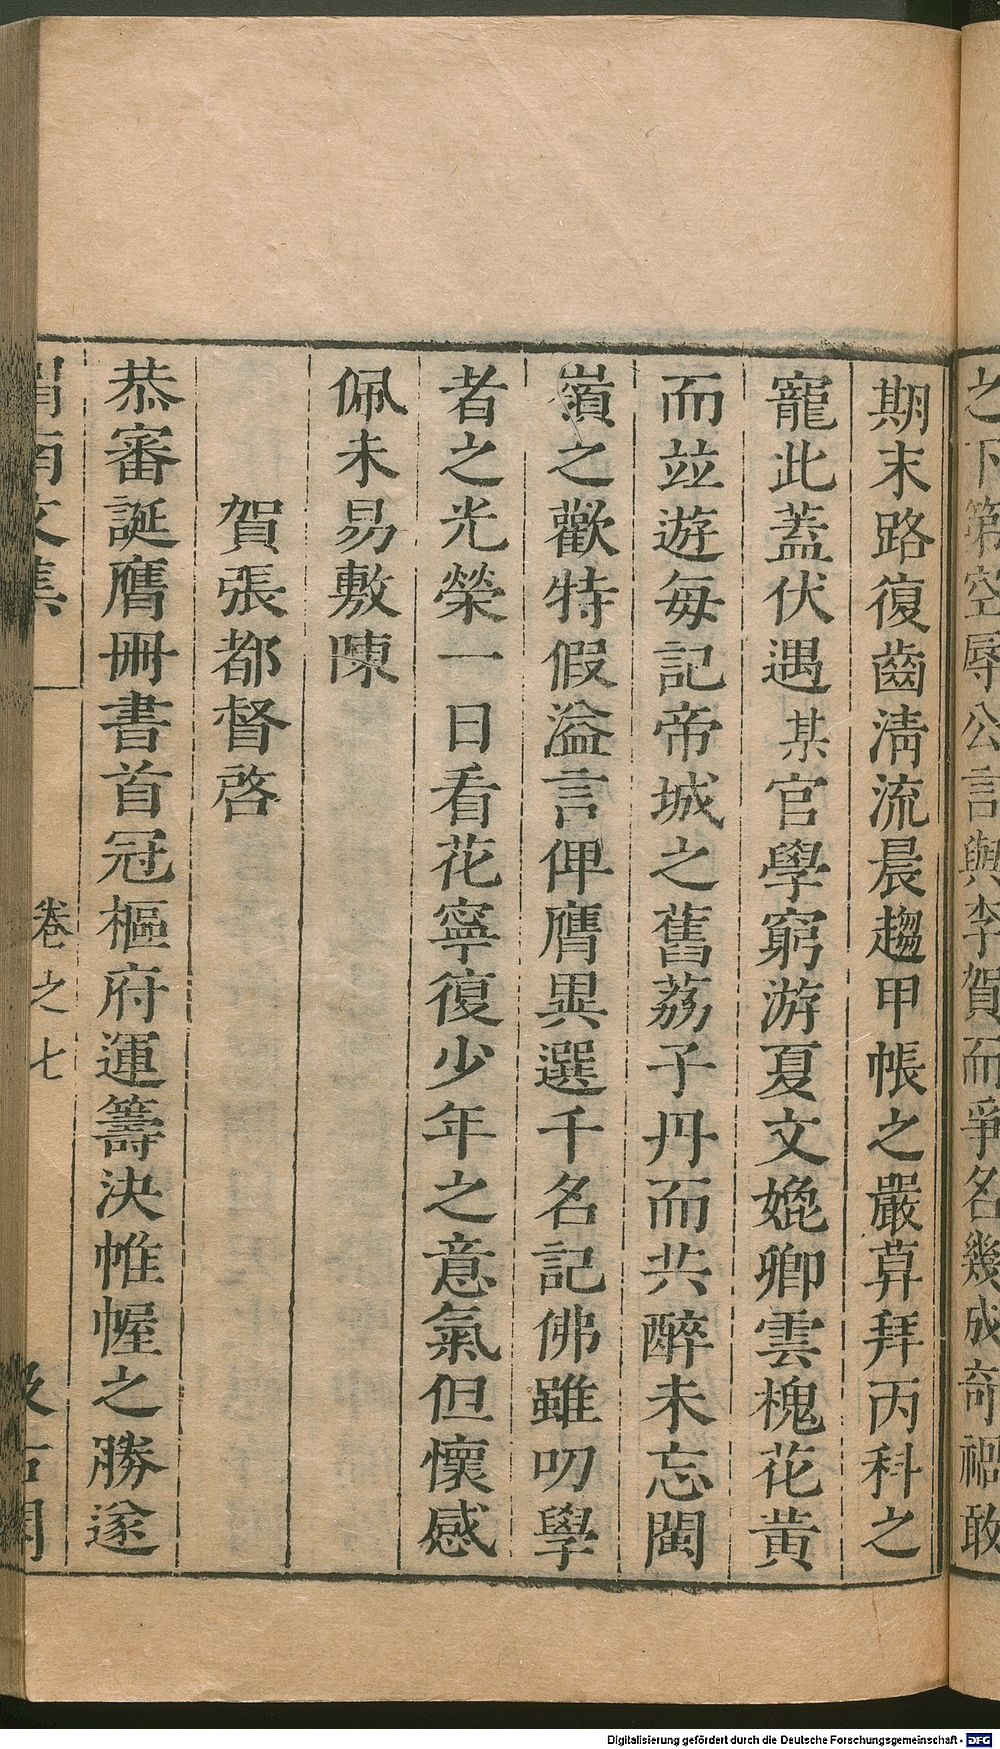 之下第空辱公言與李賀而爭名幾成奇禍敢
期末路復齒淸流晨趨甲帳之嚴荐拜丙科之
寵此蓋伏遇某官學窮游夏文媲卿雲槐花黃
而竝遊每記帝城之舊荔子丹而共醉未忘閩
嶺之歡特假溢言俾膺異選千名記佛雖叨學
者之光榮一日看花寧復少年之意氣但懷感
佩未易敷陳
賀張都督啓
恭審誕膺冊書首冠樞府運籌決帷幄之勝遂
渭南文集 卷之七 汲古閣
Digitalisierung gefördert durch die Deutsche Forschungsgemeinschaft - DFG